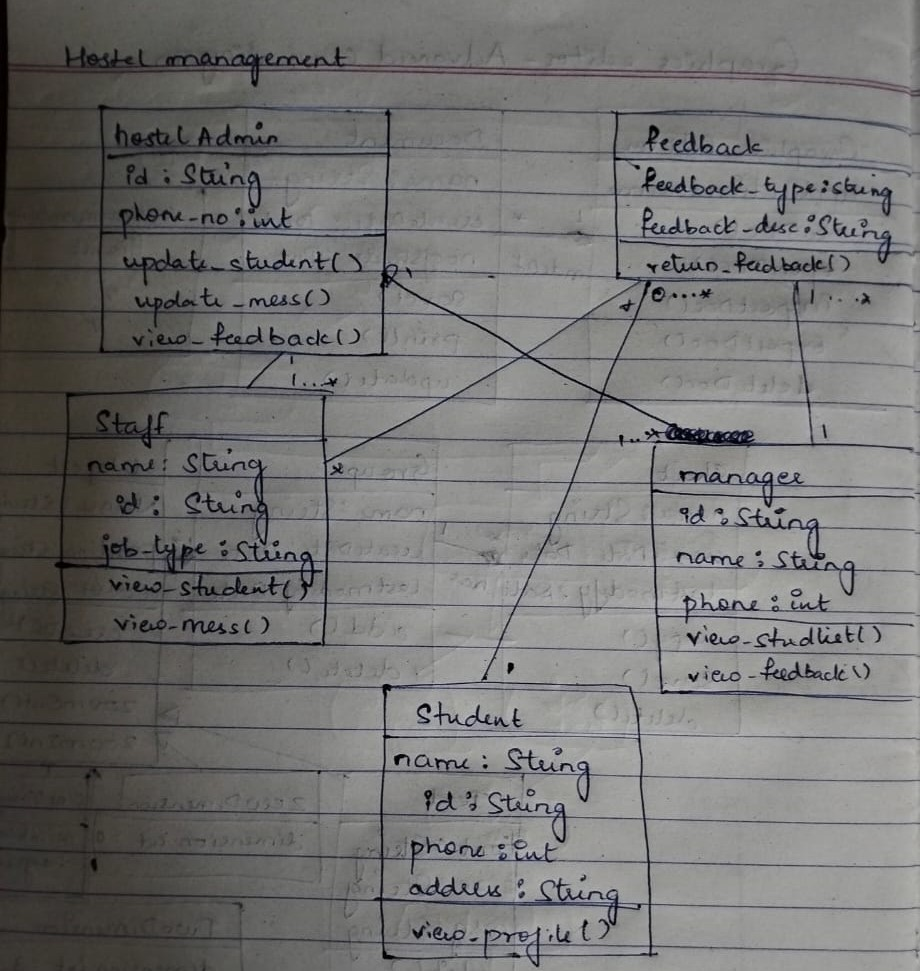 Hostel management
hostel Admin
id : String
phone_no : int
update_student()
update_mess()
view_feedback()
1
1...*
feedback
feedback_type : string
feedback_desc : String
return_feedback()
*
0...*
1...*
Staff
name : String
id : String
job_type : String
view_student()
view_mess()
*
1...*
1
manager
id : String
name : String
phone : int
view_studlist()
view_feedback()
Student
name : String
id : String
phone : int
address : String
view_profile()